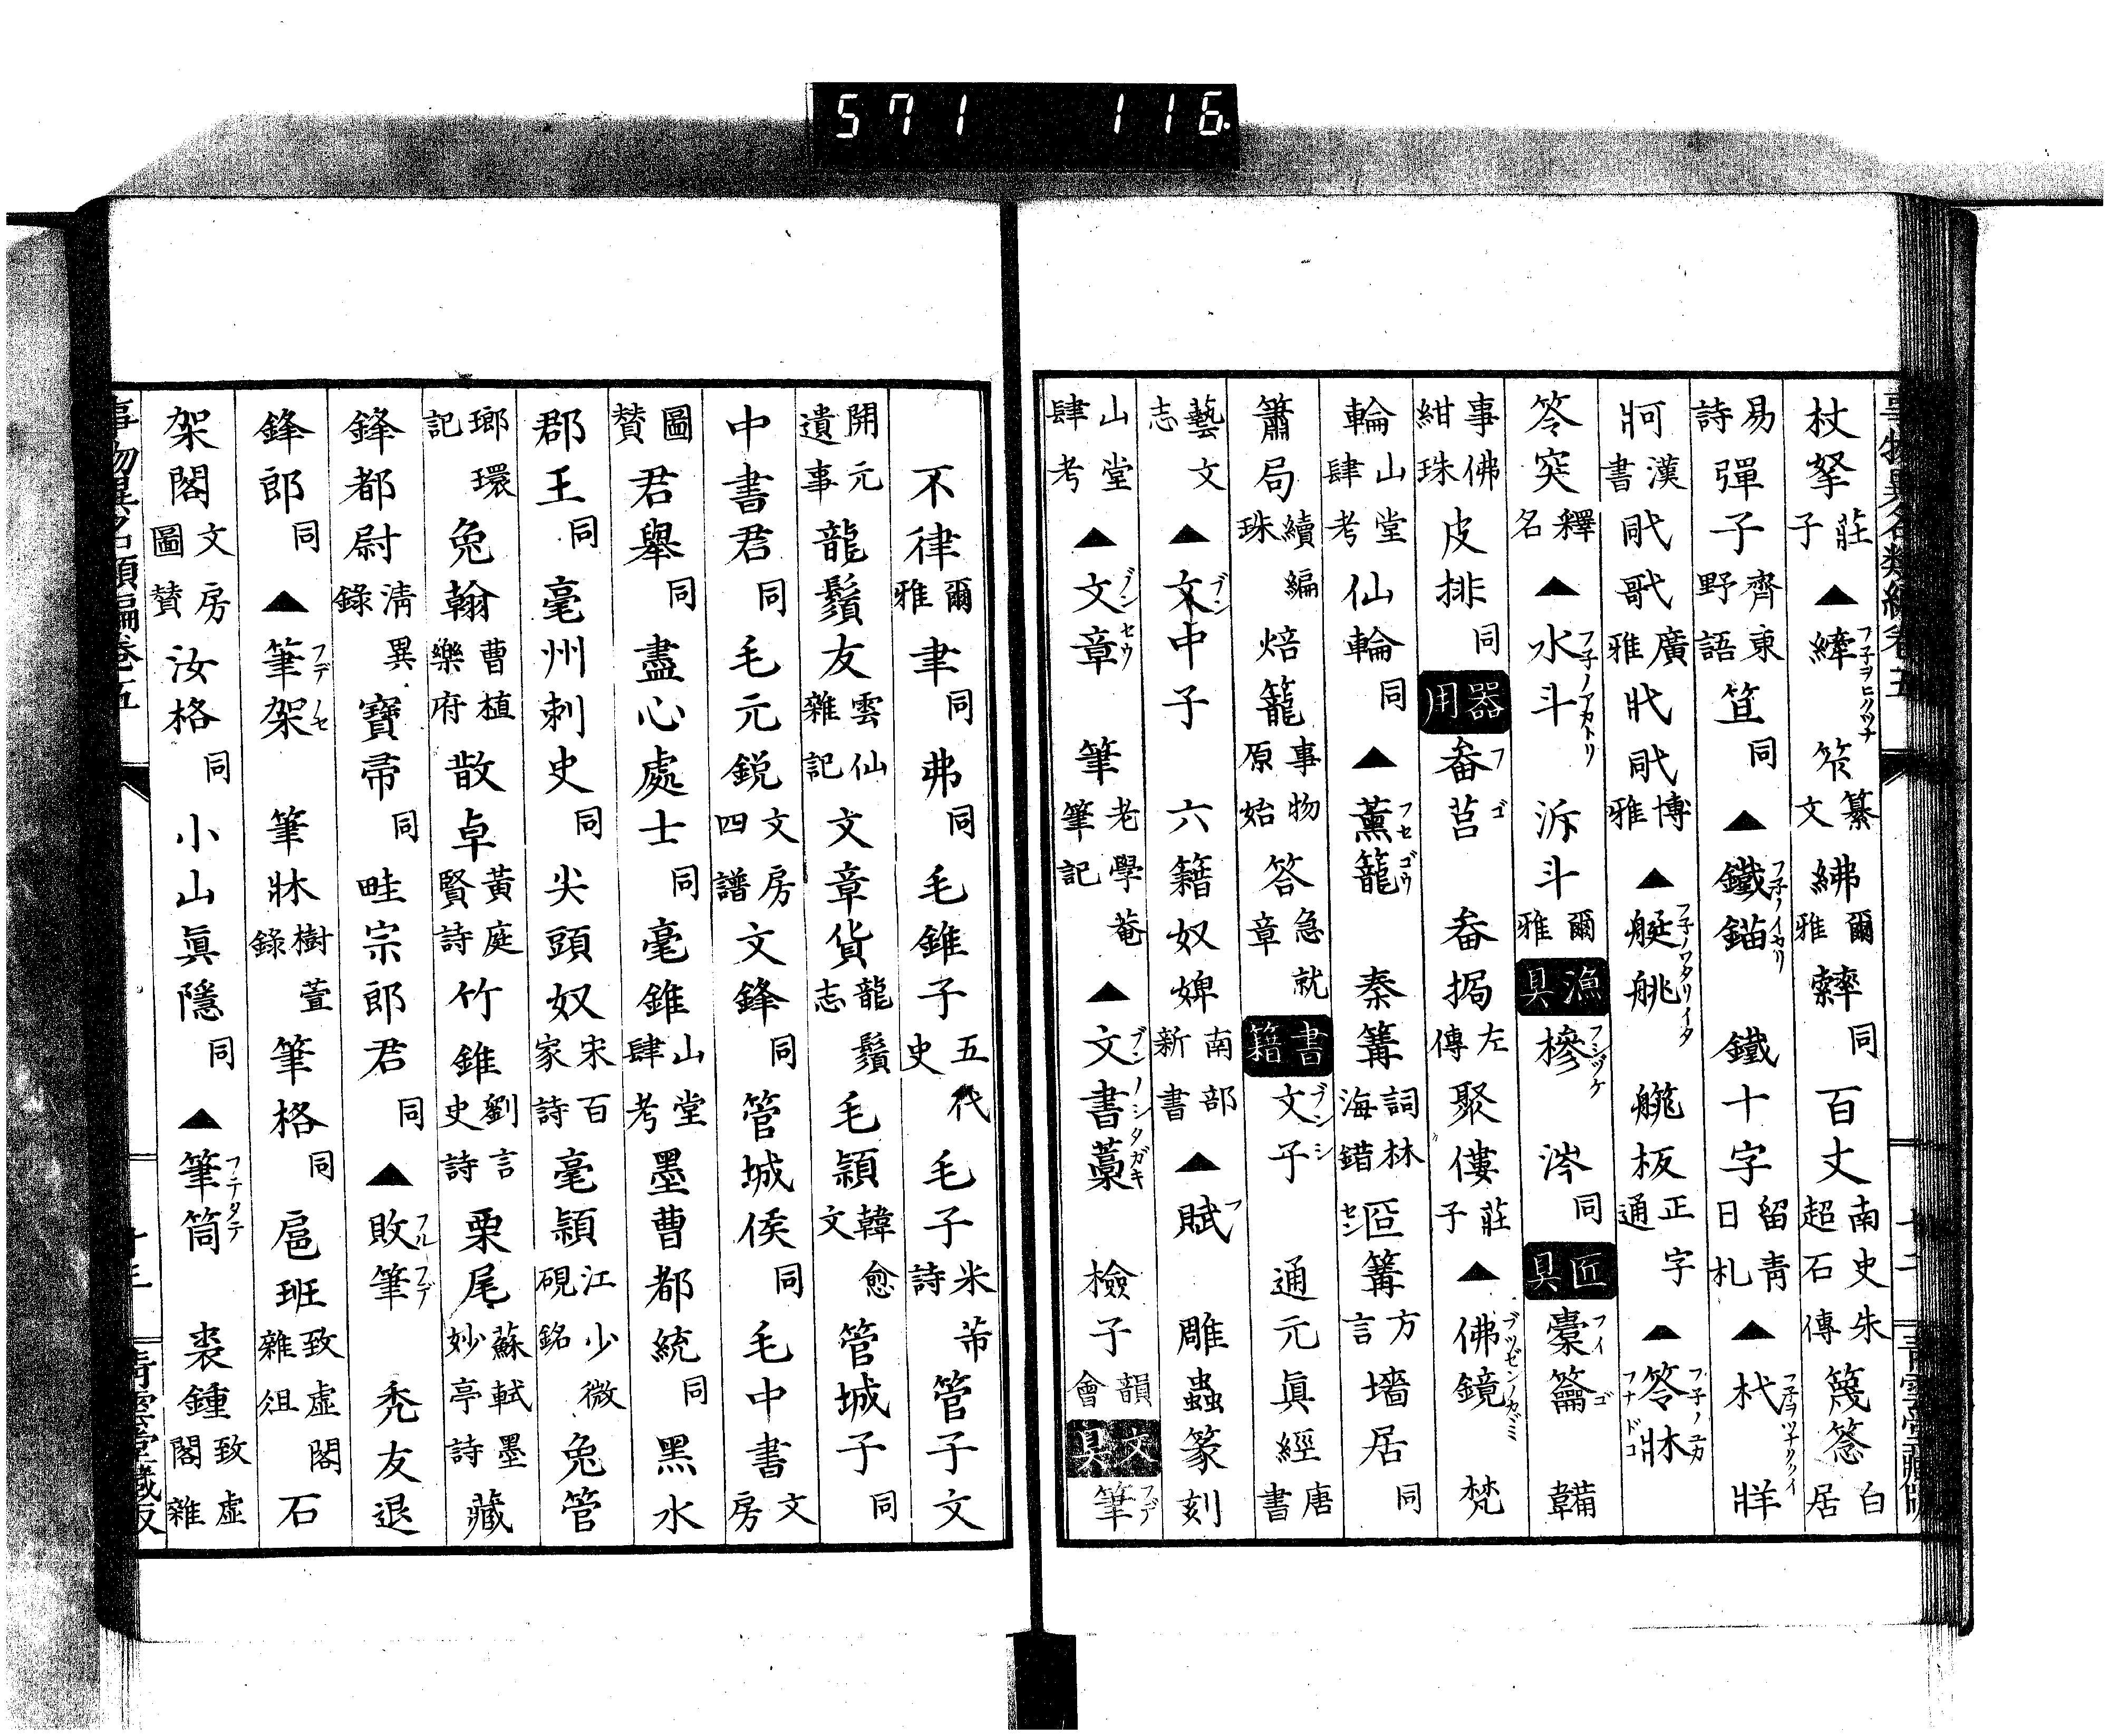 571 116
杖拏莊子▲䋖フ子ヲヒクツナ 筰纂文 紼爾雅 繂同 百丈南史朱超石傳 篾䉤白居
易詩 彈子齊東野語 笪同▲鐵錨フ子ノイカリ 鐵十字留青日札▲杙フ子ヲツナクイ 牂
牁漢書 戙𢧤廣雅 牀戙博雅▲艇䑬フ子ノワタリイタ 艞板正字通▲笭牀フ子ノユカ フナドコ
笭突釋名▲水斗フ子ノアカトリ 泝斗爾雅 漁具 槮フシヅケ 涔同 匠具 橐籥フイゴ 鞴
事佛紺珠 皮排同 器用 畚莒フゴ 畚挶左傳 聚僂莊子▲佛鏡ブツゼンノカヾミ 梵
輪山堂肆考 仙輪同▲薰籠フセゴウ 秦篝詞林海錯 篝方言 墻居同
簫局續編珠 焙籠事物原始 笿急就章 書籍 文子ブンシ 通元眞經唐書
藝文志▲文中子ブン 六籍奴婢南部新書▲賦フ 雕蟲篆刻
山堂肆考▲文章ブンセウ 筆老學菴筆記▲文書藁ブンノシタガキ 檢子韻會 文具 筆フデ
不律爾雅 聿同 弗同 毛錐子五代史 毛子米芾詩 管子文
開元遺事 龍鬚友雲仙雜記 文章貨龍鬚志 毛穎韓愈文 管城子同
中書君同 毛元鋭文房四譜 文鋒同 管城侯同 毛中書文房
圖贊 君舉同 盡心處士同 毫錐山堂肆考 墨曹都統同 黑水
郡王同 毫州刺史同 尖頭奴宋百家詩 毫穎江少微硯銘 兔管
瑯環記 兔翰曹植樂府 散卓黃庭賢詩 竹錐劉言史詩 栗尾蘇軾墨妙亭詩 藏
鋒都尉清異錄 寶帚同 畦宗郎君同▲敗筆フルフデ 禿友退
鋒郎同▲筆架フデノセ 筆牀樹萱錄 筆格同 扈班致虛閣雜俎 石
架閣文房圖贊 汝格同 小山眞隱同▲筆筒フテタテ 裘鍾致虛閣雜